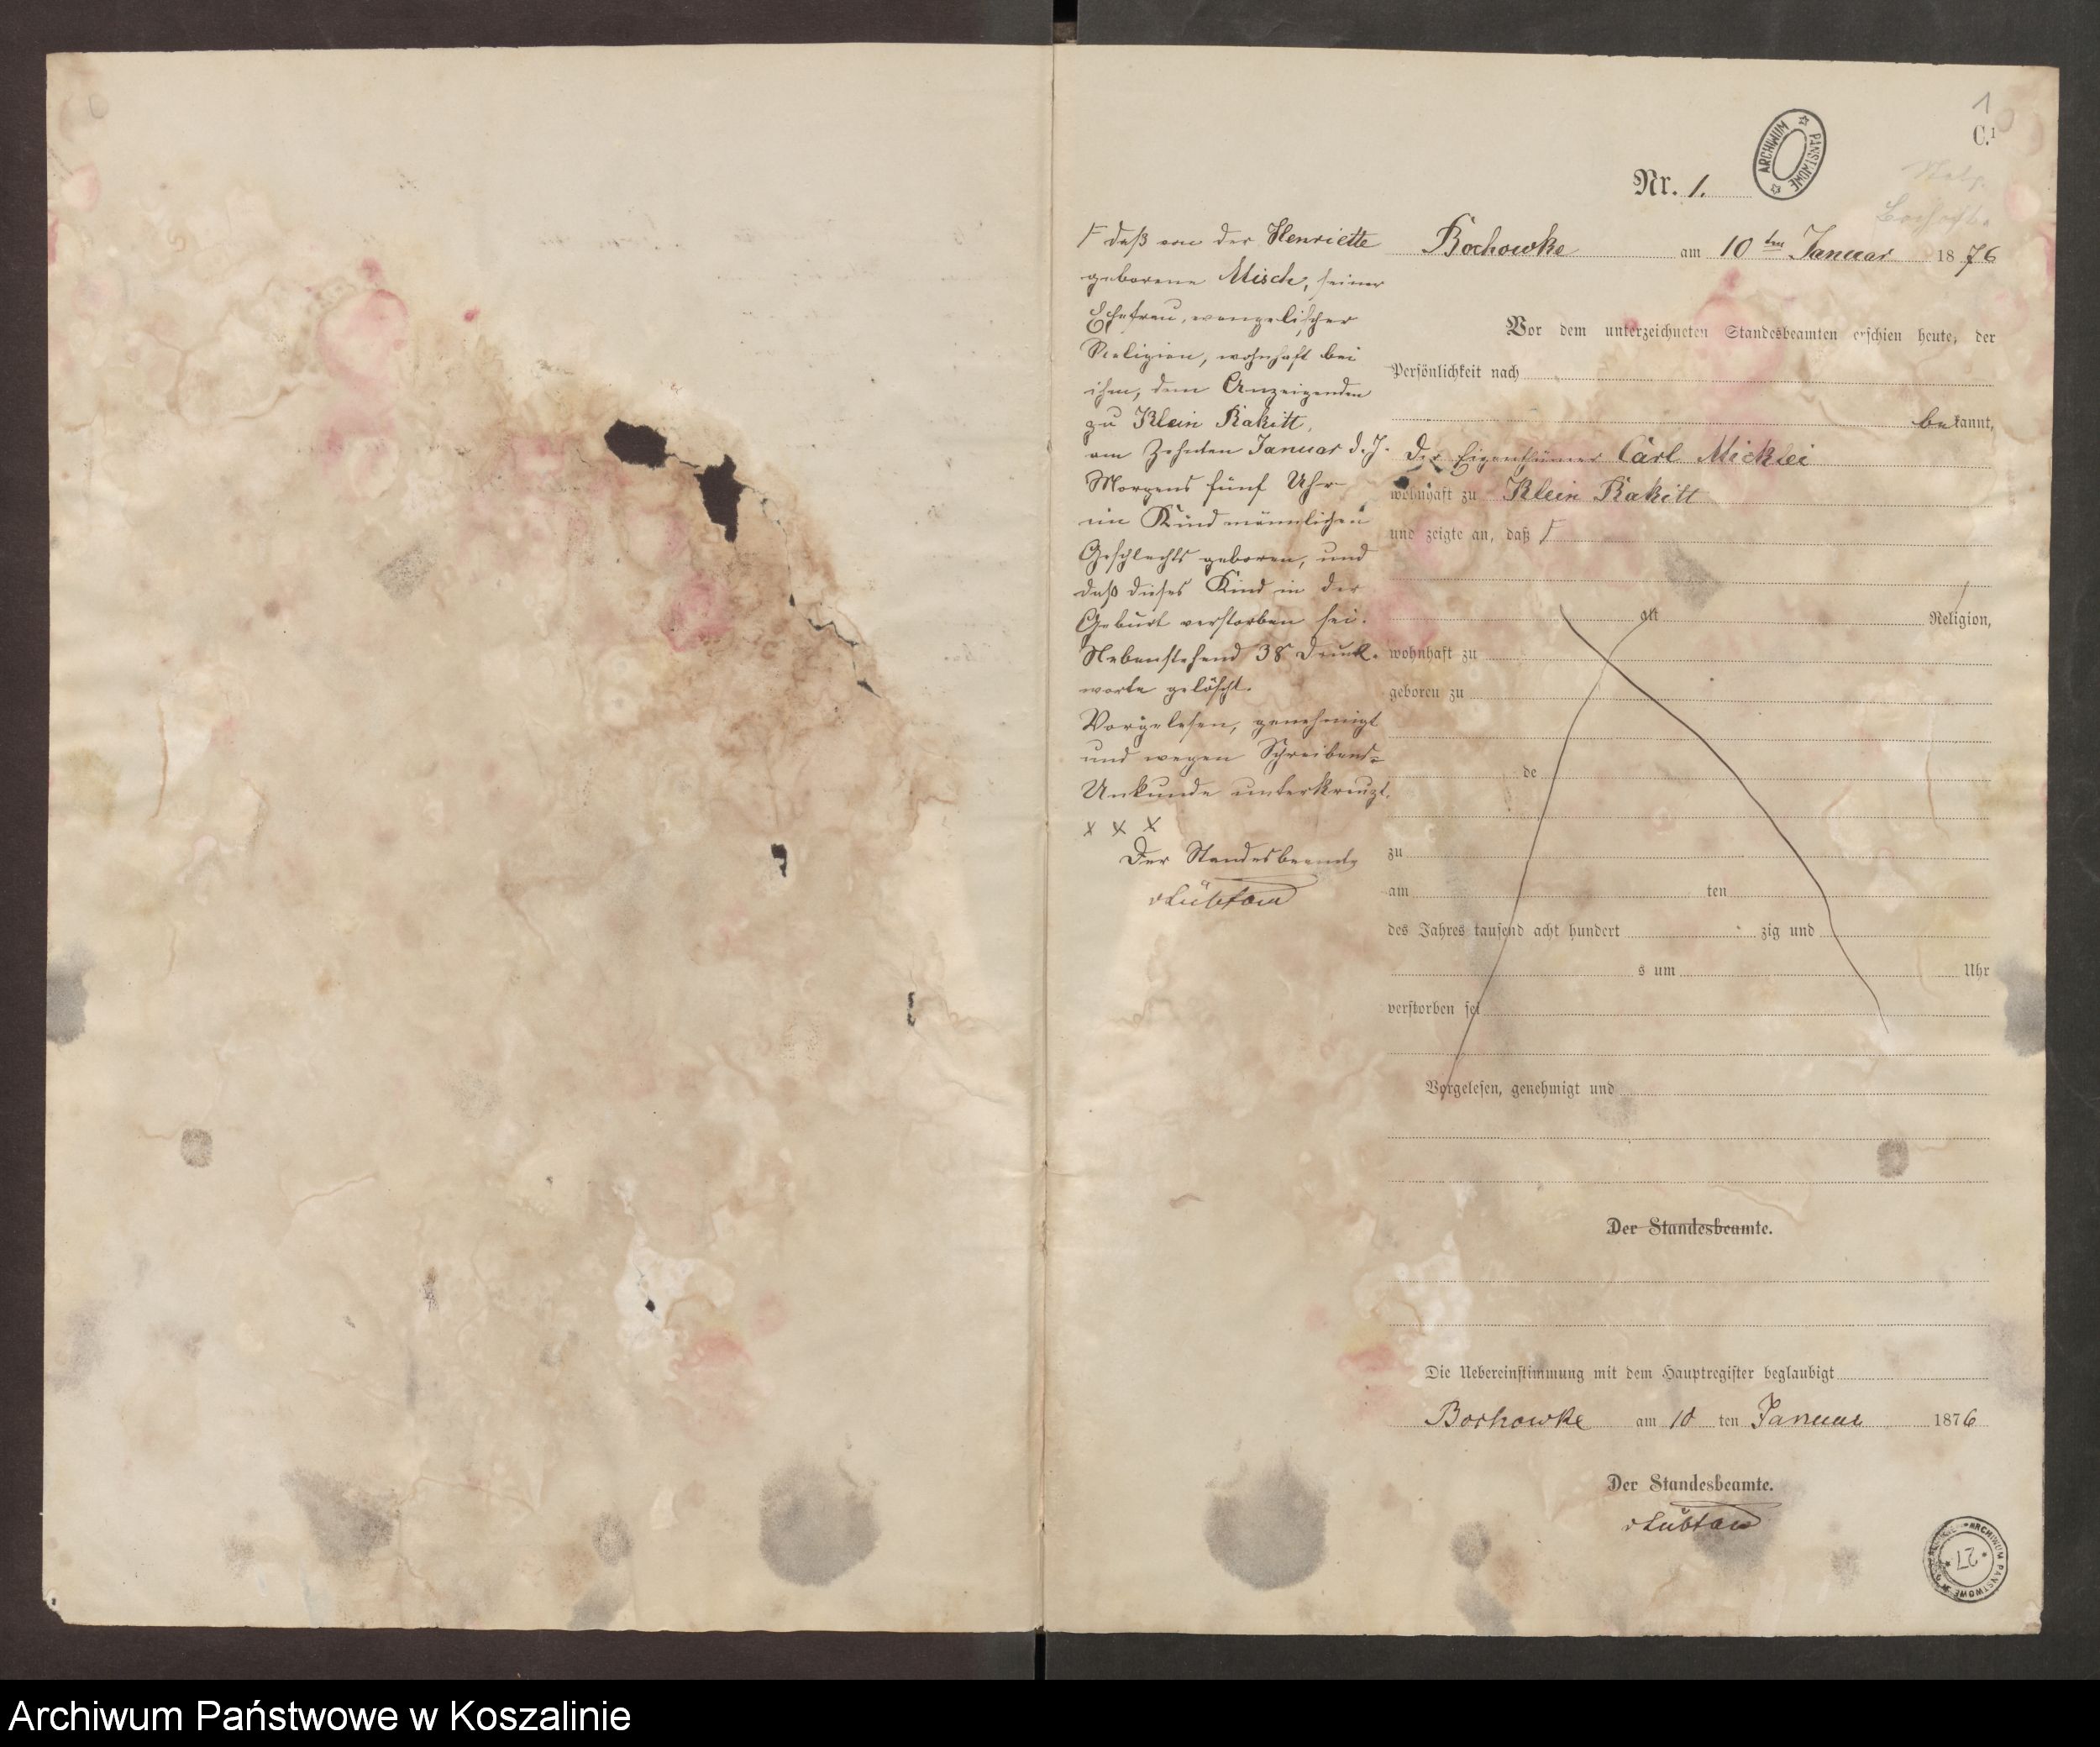 1
C.¹
ARCHIWUM PAŃSTWOWE
Nr. 1.
Bochowke am 10 ten Januar 1876
Vor dem unterzeichneten Standesbeamten erschien heute, der
Persönlichkeit nach
bekannt,
der Eigenthümer Carl Micklei
wohnhaft zu Klein Rakitt
und zeigte an, daß F
alt Religion,
wohnhaft zu
geboren zu
de
zu
am ten
des Jahres tausend acht hundert zig und
s um Uhr
verstorben sei
Vorgelesen, genehmigt und
Der Standesbeamte.
Die Uebereinstimmung mit dem Hauptregister beglaubigt
Bochowke am 10 ten Januar 1876
Der Standesbeamte.
vLübtow
F daß von der Henriette
geborene Misch, seiner
Ehefrau, evangelischer
Religion, wohnhaft bei
ihm, dem Anzeigenden
zu Klein Rakitt,
am Zehnten Januar d. J.
Morgens fünf Uhr
ein Kind männlichen
Geschlechts geboren, und
daß dieses Kind in der
Geburt verstorben sei.
Nebenstehend 38 Druck-
worte gelöscht.
Vorgelesen, genehmigt
und wegen Schreibens-
Unkunde unterkreuzt.
x x x
Der Standesbeamte
vLübtow
ARCHIWUM PAŃSTWOWE
27
Archiwum Państwowe w Koszalinie